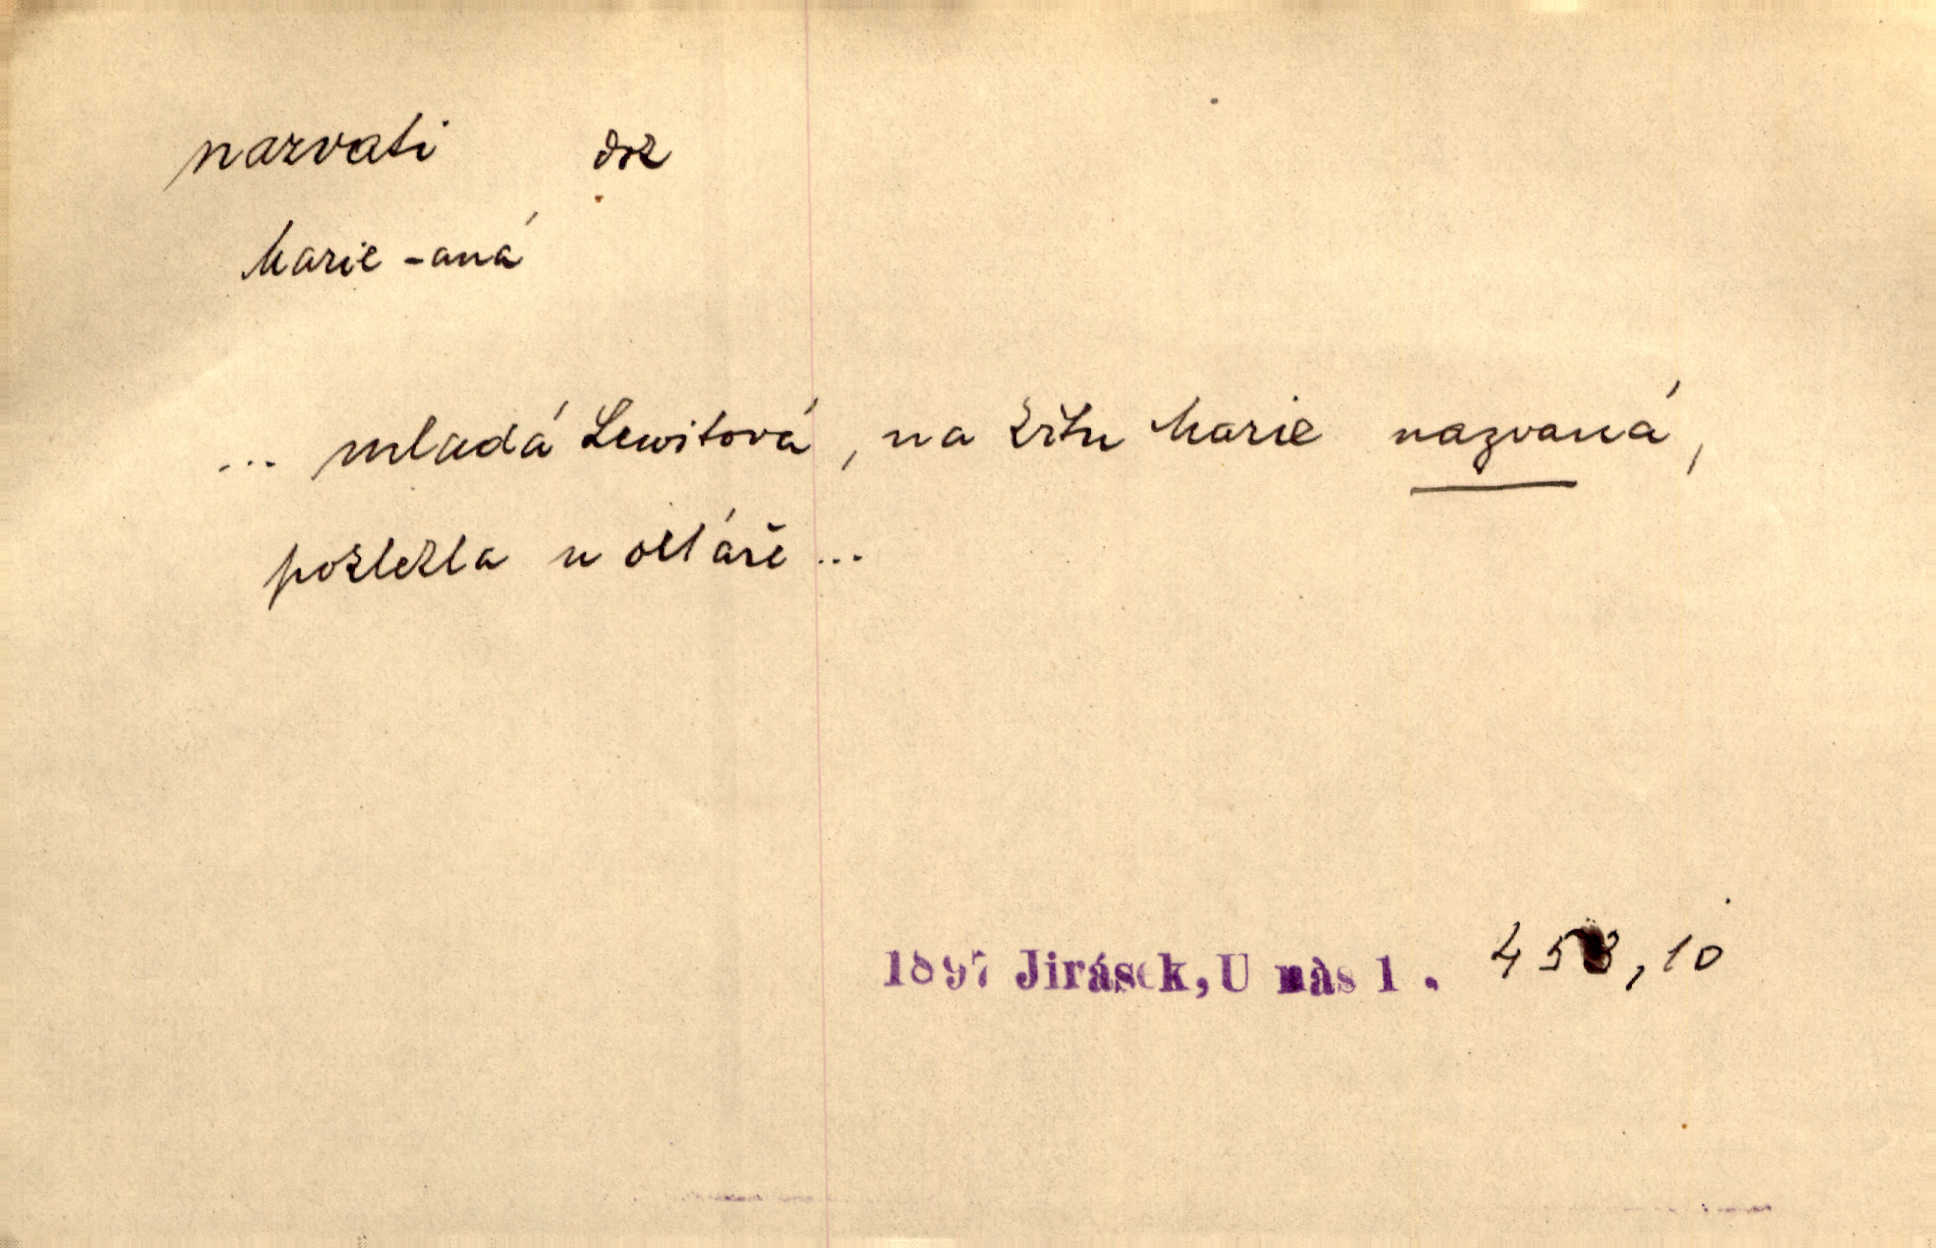 nazvati dok
Marie -aná
... mladá Lewitová, na křtu Marie nazvaná,
poklekla u oltáře ...
1897 Jirásek, U nàs 1. 453,10